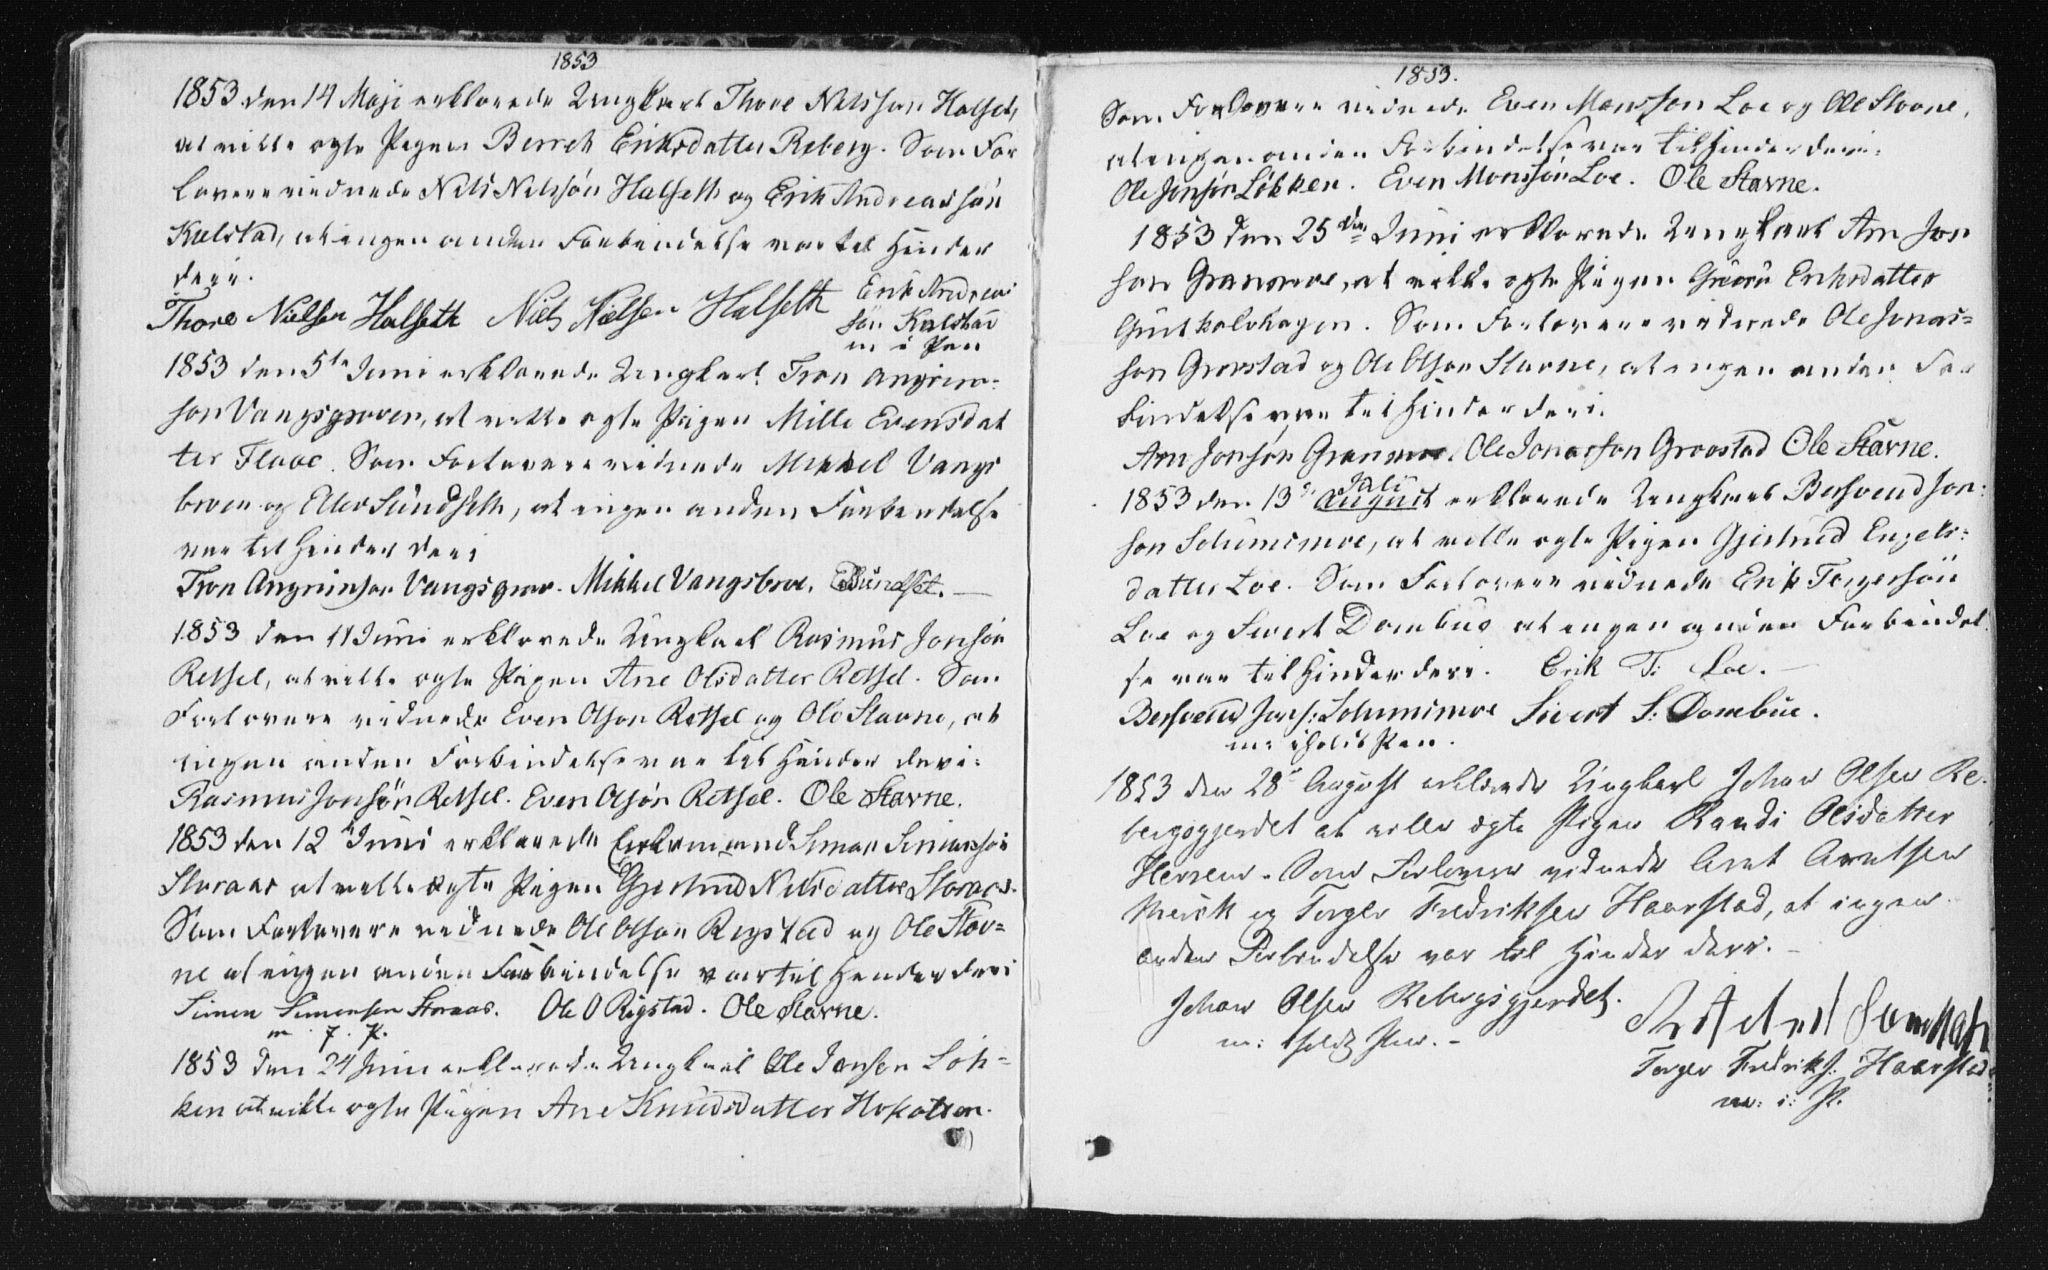 1853
1853 den 14 Maji erklærede Ungkarl Thore Nilsson Halset,
at ville ægte Pigen Berret Eriksdatter Reberg. Som For
lovere vidnede Nils Nilssön Halseth og Erik Andreassön
Kulstad, at ingen anden Forbindelse var til Hinder
deri.
Thore Nielsen Halseth Niels Nielsen Halseth Erik Andreas
sön Kulstad
m i Pen
1853 den 5te Juni erklærede Ungkarl Tron Angrim-
son Vangsgroven, at ville ægte Pigen Mille Evensdat
ter Flaae. Som Forlovere vidnede Mikkel Vangs
broen og Eller Sundseth, at ingen anden Forbindelse
var til Hinder deri
Tron Angrimson Vangsgrov. Mikkel Vangsbroe. ESundset. —
1853 den 11 Juni erklærede Ungkarl Rasmus Jonsön
Retsel, at ville ægte Pigen Ane Olsdatter Retsel. Som
Forlovere vidnede Even Olson Retsel og Ole Stavne, at
ingen anden Forbindelse var til Hinder deri.
Rasmus Jonsön Retsel. Even Olsön Retsel. Ole Stavne.
1853 den 12te Juni erklærede Enkemand Simon Simonsön
Storaas at ville ægte Pigen Gjertrud Nilsdatter Storaas.
Som Forlovere vidnede Ole Olson Rigstad og Ole Stav=
ne at ingen anden Forbindelse var til Hinder deri
Simen Simensen Storaas. Ole O Rigstad. Ole Stavne.
m. i. P.
1853 den 24 Juni erklærede Ungkarl Ole Jonsen Lök=
ken at ville ægte Pigen Ane Knudsdatter
1853.
Som Forlovere vidnede Even Monsson Loe og Ole Stavne,
at ingen anden Forbindelse var til Hinder deri.
Ole Jonsön Lökken. Even Monssön Loe. Ole Stavne.
1853 den 25de Juni erklærede Ungkarl Arn Jon
son Granmoe, at ville ægte Pigen Guru Eriksdatter
. Som Forlovere vidnede Ole Jonas=
son Grovstad og Ole Olson Stavne, at ingen anden For
bindelse var til Hinder deri.
Arn Jonsön Granmoe. Ole Jonasson Grovstad Ole Stavne.
Juli
1853 den 13de August erklærede Ungkarl Besvend Jon=
son Solumsmoe, at ville ægte Pigen Gjertrud Engels=
datter Loe. Som Forlovere vidnede Erik Torgersön
Loe og Sivert Dombue at ingen anden Forbindel
se var til Hinder deri. Erik T: Loe. —
Besvend Jons: Solumsmoe Sivert S: Dombue.
m: iholdt Pen.
1853 den 28de August erklærede Ungkarl Johan Olsen Re-
bergsgjerdet at ville ægte Pigen Randi Olsdatter
. Som Forlovere vidnede Arnt Arntsen
og Torger Fredriksen Haarstad, at ingen
anden Forbindelse var til Hinder deri. —
Johan Olsen Rebergsgjerdet.
m: iholdt Pen. —
Torger Fredriks: Haarstad
m: i: P.